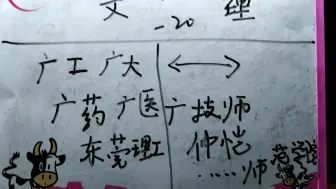 文 理
-20
广工 广大
广药 广医 广技师
东莞理工 仲恺
……师